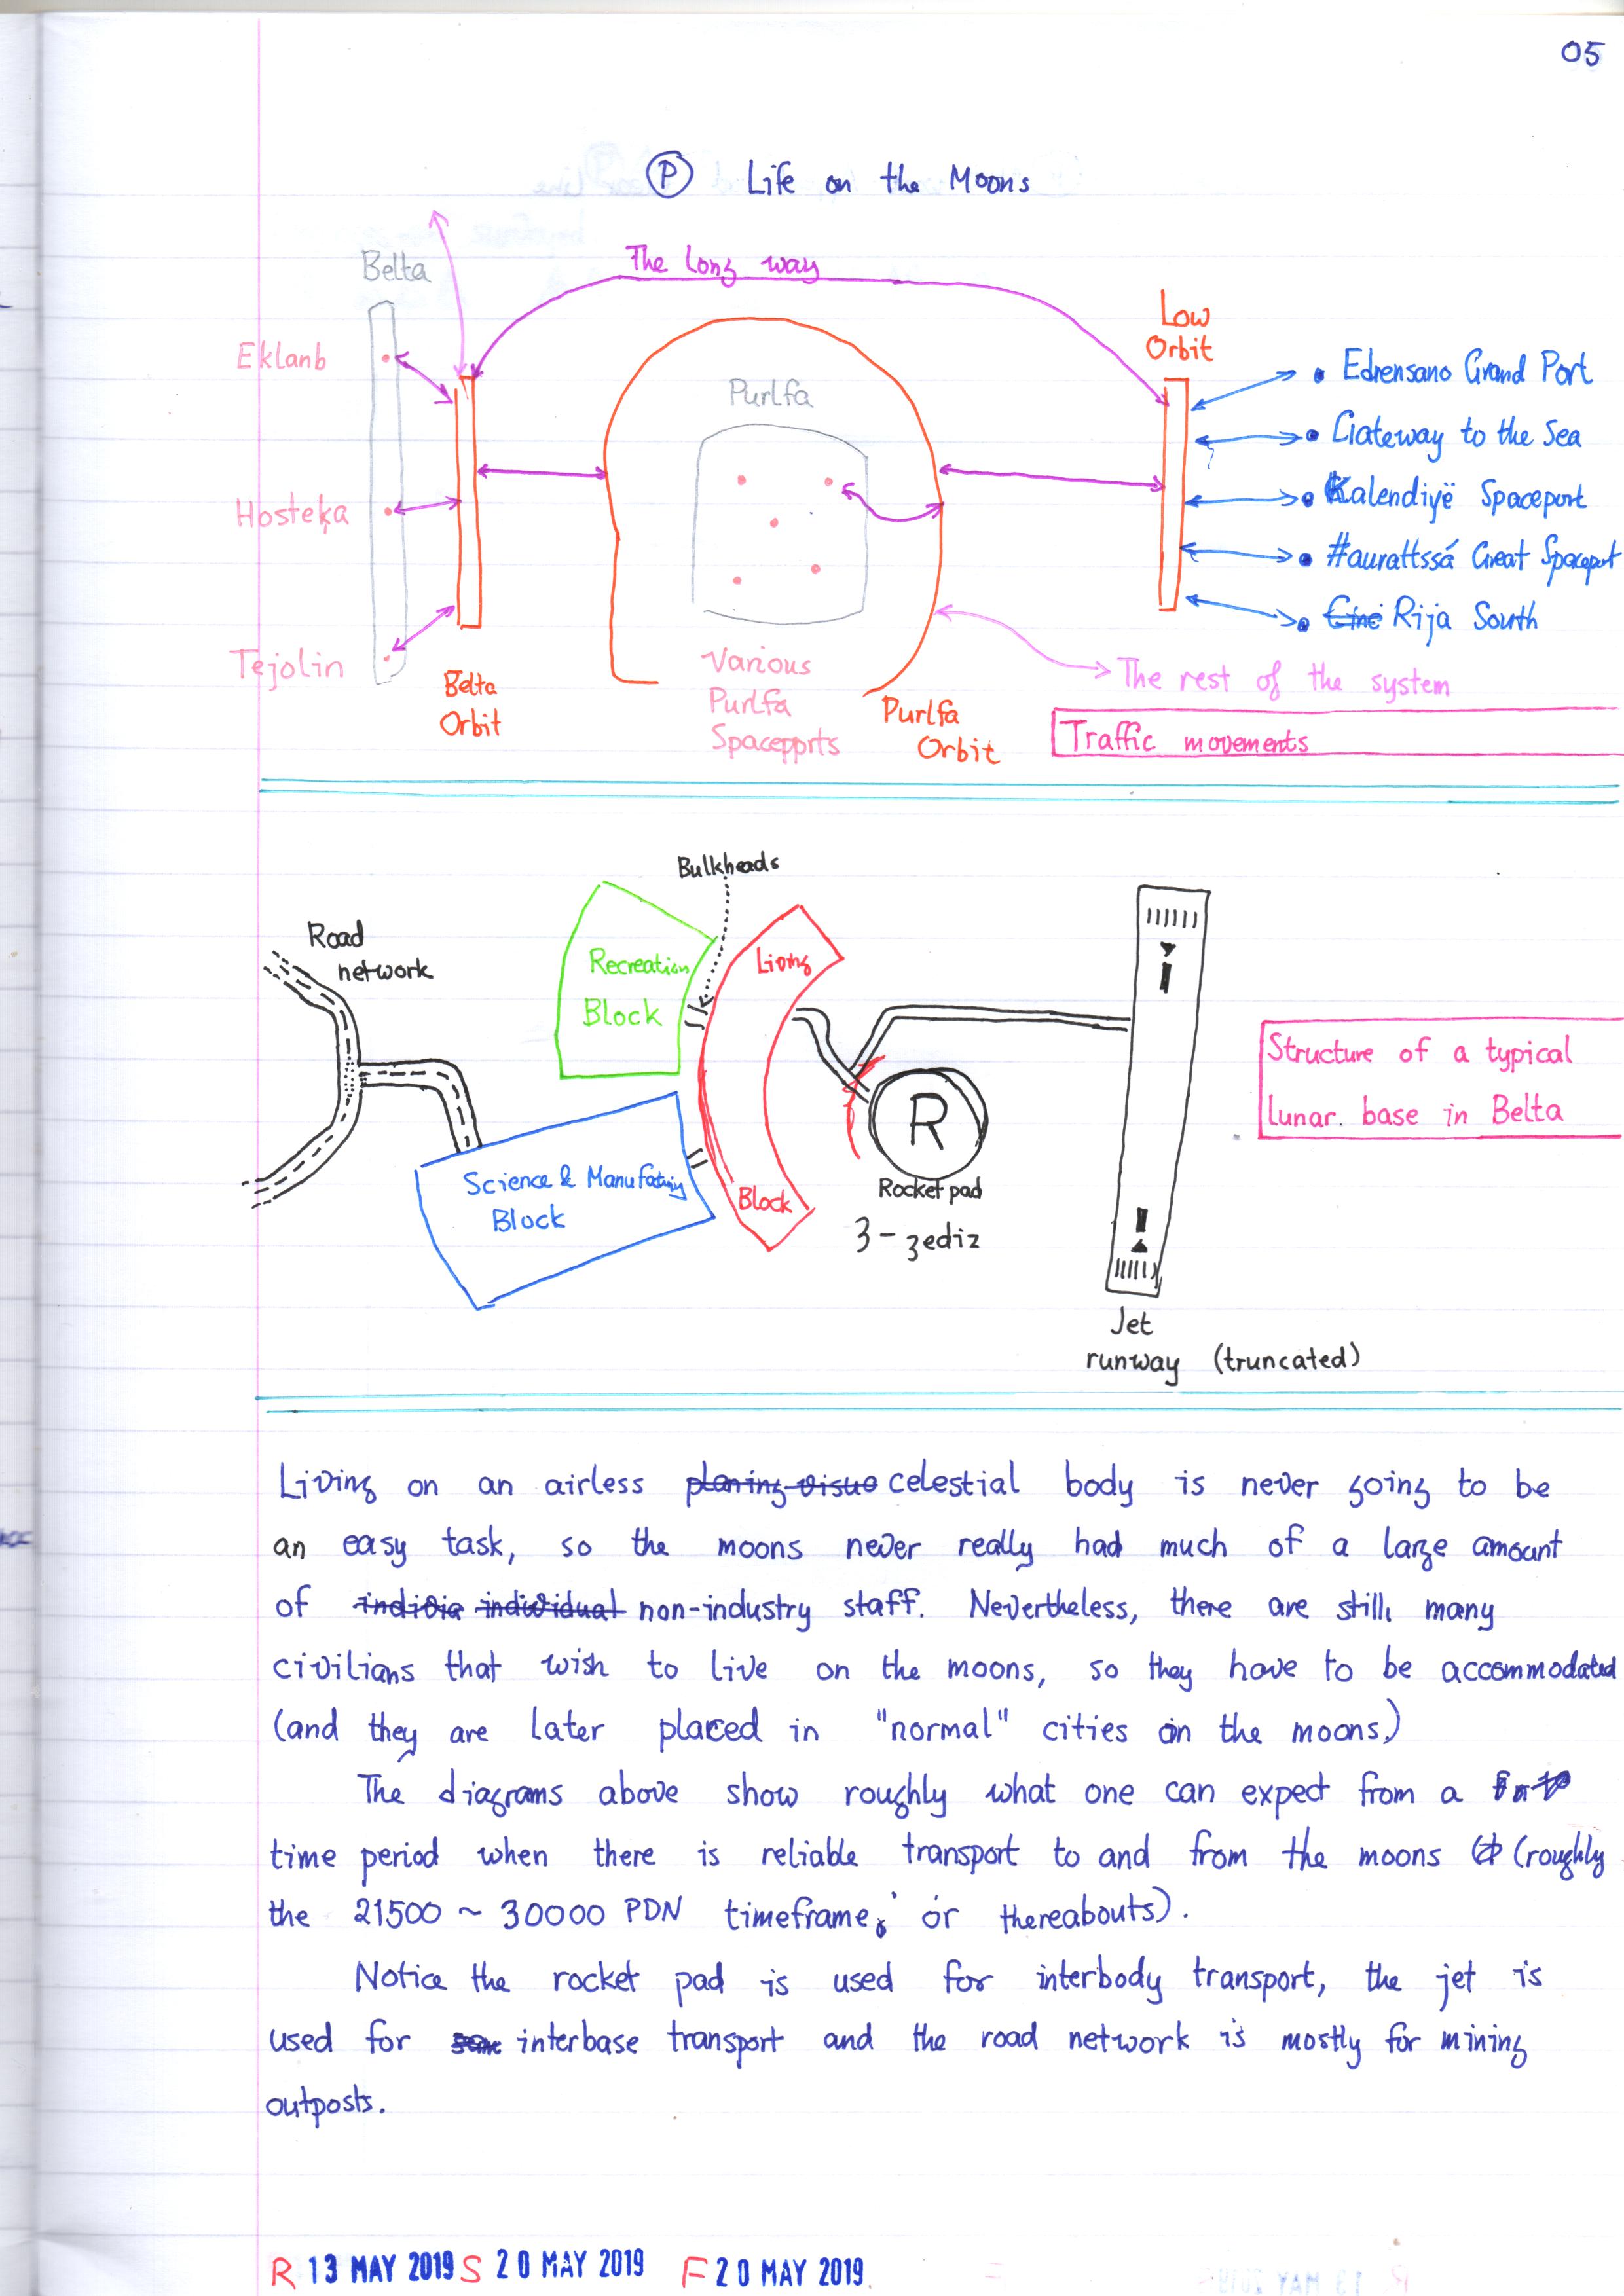 05
Ⓟ Life on the Moons
Belta
The long way
Low
Orbit
Eklanb
Purlfa
Edrensano Grand Port
Gateway to the Sea
Kalendiyë Spaceport
Hosteķa
Haurattssá Great Spaceport
Rija South
Tejolin
Belta
Orbit
Various
Purlfa
Spacepprts
Purlfa
Orbit
The rest of the system
Traffic movements
Bulkheads
Road
network
Recreation
Block
Living
Block
Structure of a typical
lunar base in Belta
R
Science & Manufacturing
Block
Rocket pad
3-zediz
Jet
runway (truncated)
Living on an airless celestial body is never going to be
an easy task, so the moons never really had much of a large amount
of individual non-industry staff. Nevertheless, there are still many
civilians that wish to live on the moons, so they have to be accommodated
(and they are later placed in "normal" cities on the moons.)
The diagrams above show roughly what one can expect from a
time period when there is reliable transport to and from the moons (roughly
the 21500 ~ 30000 PDN timeframe, or thereabouts).
Notice the rocket pad is used for interbody transport, the jet is
used for interbase transport and the road network is mostly for mining
outposts.
R 13 MAY 2019 S 20 MAY 2019 F 20 MAY 2019